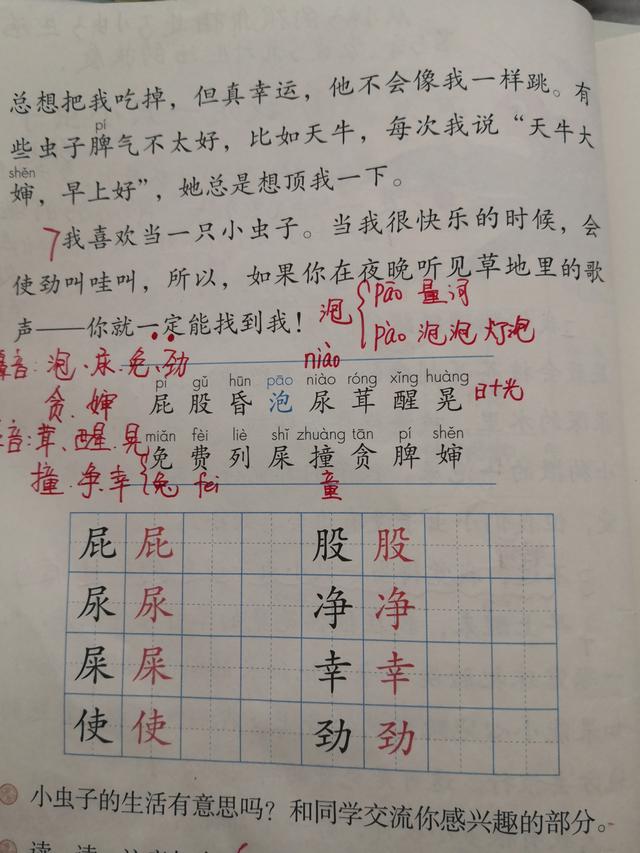 总想把我吃掉，但真幸运，他不会像我一样跳。有
pí
些虫子脾气不太好，比如天牛，每次我说“天牛大
shěn
婶，早上好”，她总是想顶我一下。
7我喜欢当一只小虫子。当我很快乐的时候，会
使劲叫哇叫，所以，如果你在夜晚听见草地里的歌
声——你就一定能找到我！
泡 pāo 量词
pào 泡泡 灯泡
音：泡、尿、免、劲
贪、婶
niào
日+光
pì gǔ hūn pāo niào róng xǐng huàng
屁 股 昏 泡 尿 茸 醒 晃
音：茸、醒、晃
撞、净、幸
miǎn fèi liè shǐ zhuàng tān pí shěn
免 费 列 屎 撞 贪 脾 婶
兔 fei
童
屁 屁 股 股
尿 尿 净 净
屎 屎 幸 幸
使 使 劲 劲
小虫子的生活有意思吗？和同学交流你感兴趣的部分。